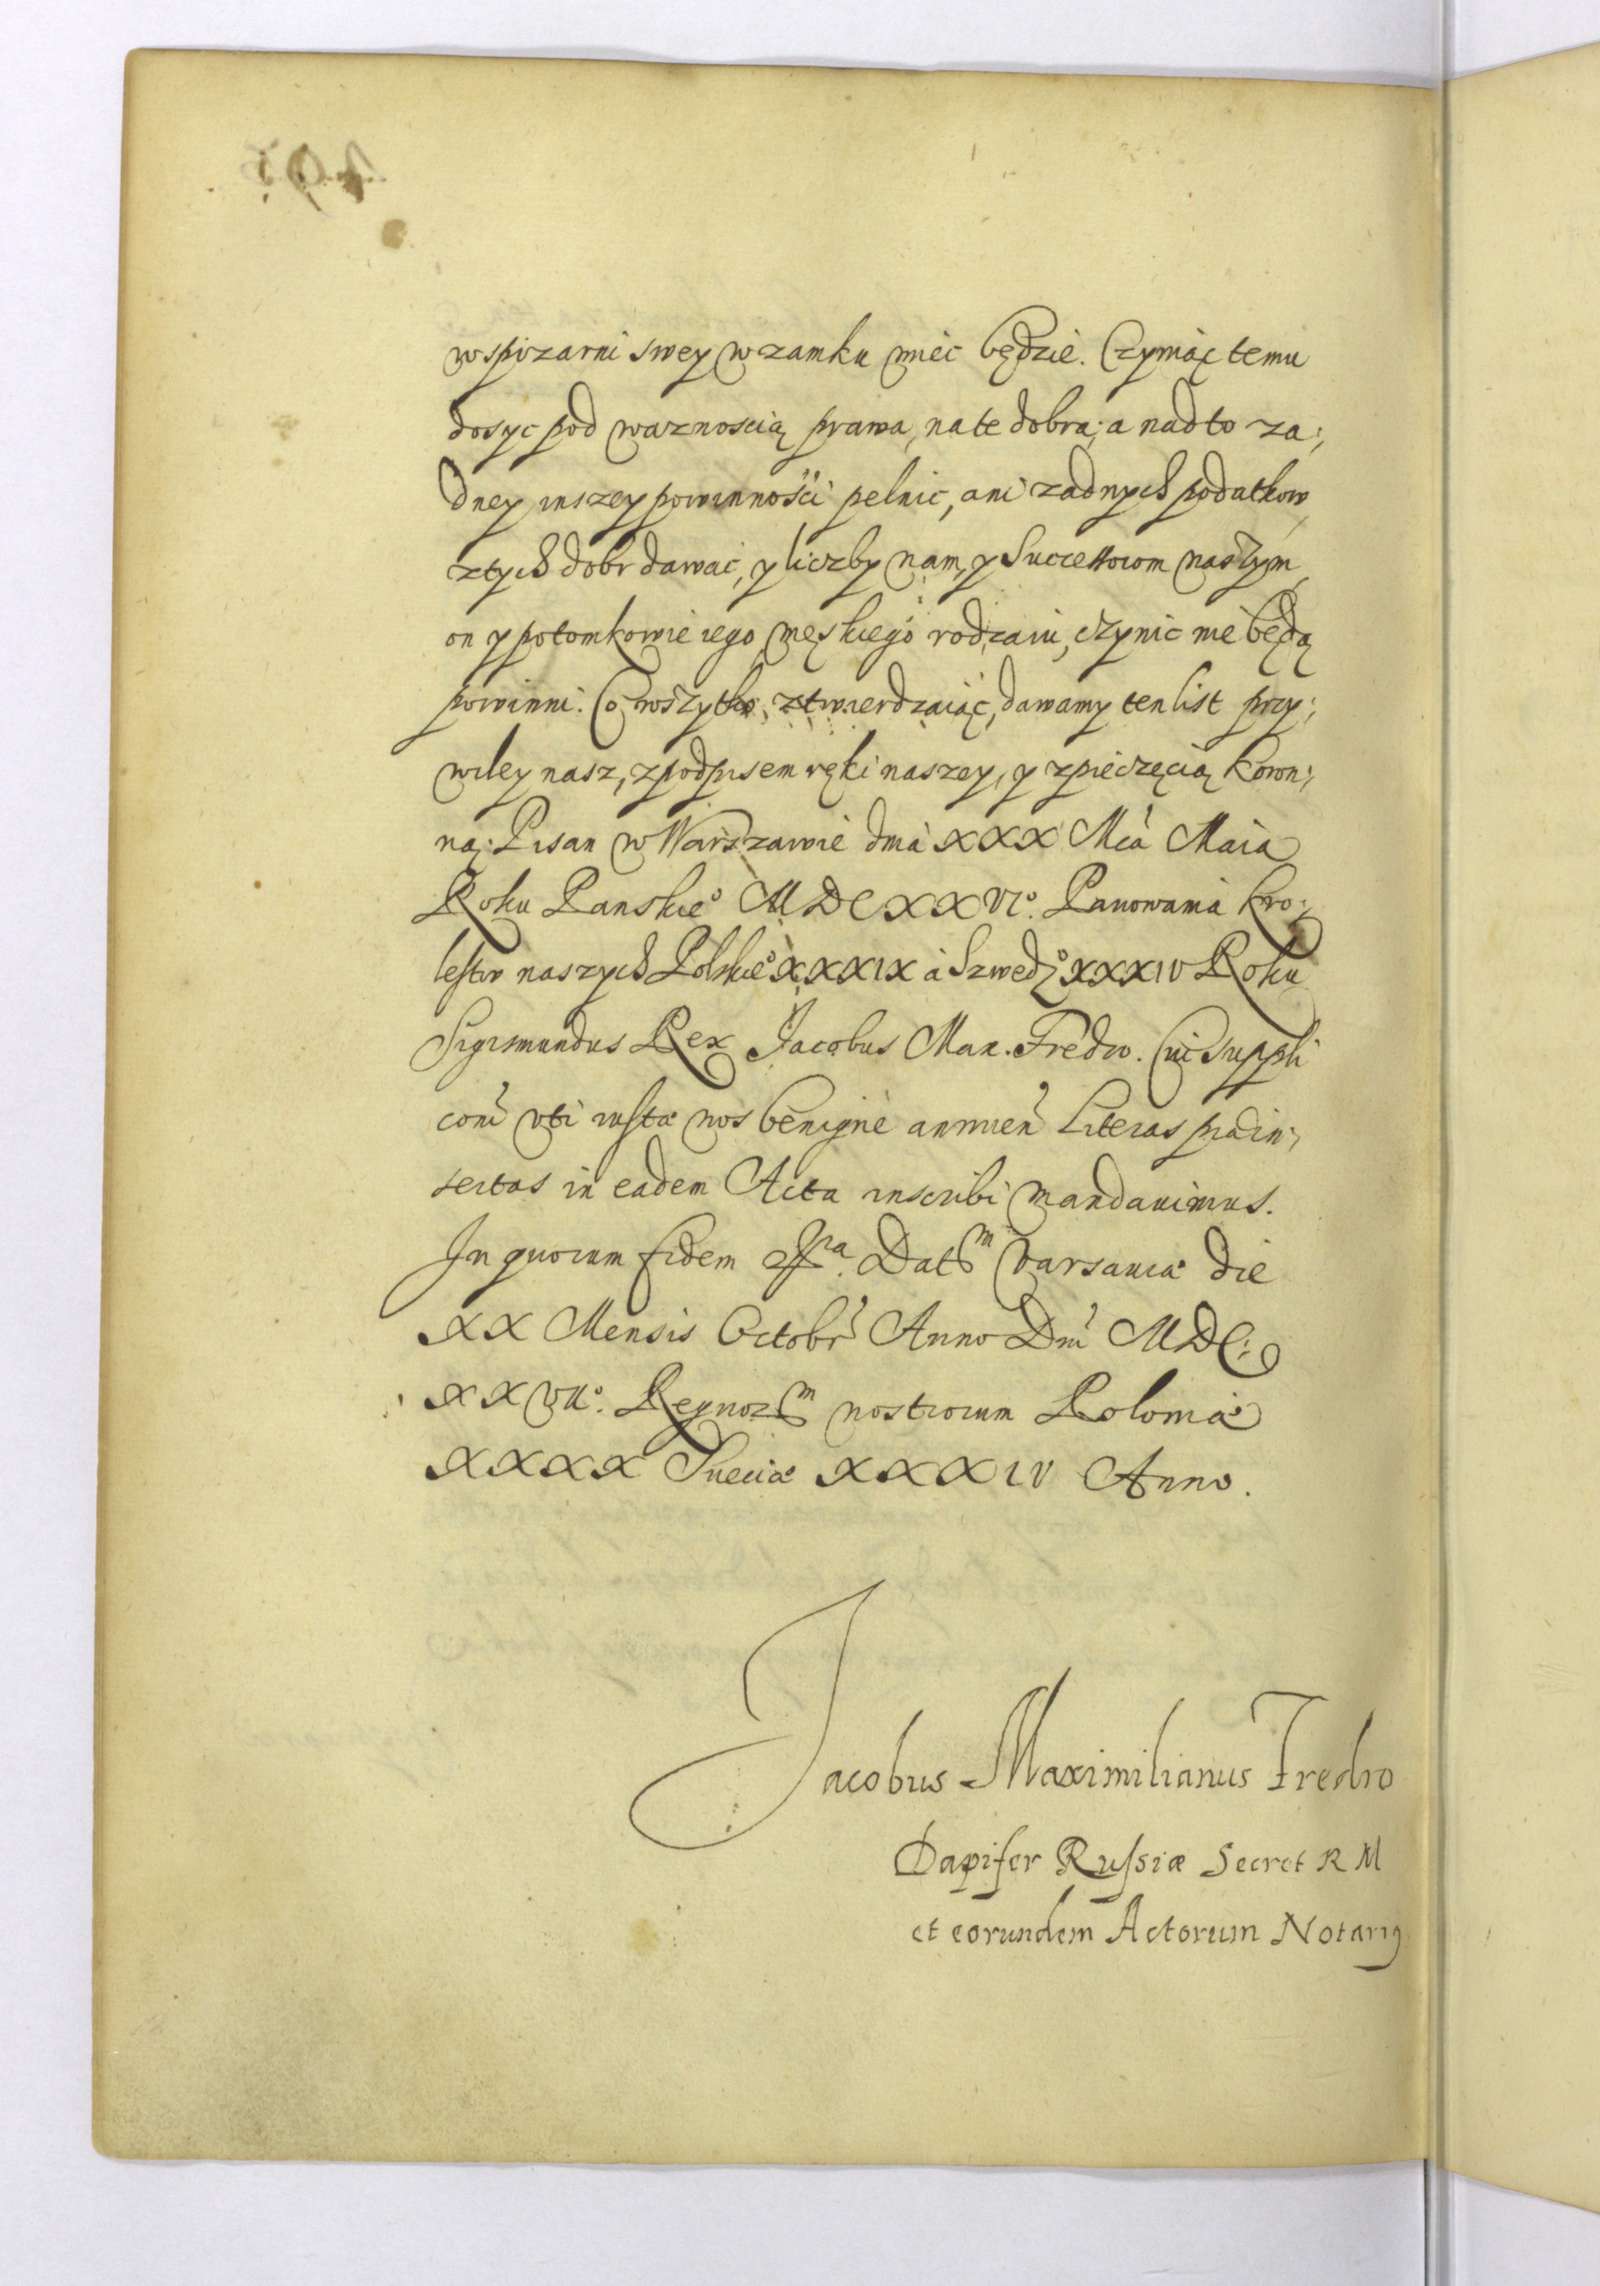 wspizarni swey w zamku miec będzie. Czyniąc temu
dosyc pod waznoscią prawa, na te dobra; a nadto za;
dney inszey powinnośći pelnic, ani zadnych podatkow
ztych dobr dawac, y liczby nam, y Successorom naszym,
on y potomkowie iego męskiego rodzaiu, czynic nie będą
powinni. Co wszytko ztwierdzaiąc, dawamy ten list przy;
wiley nasz, z podpisem ręki naszey, y z pieczęcią koron;
ną. Pisan w Warszawie dnia XXX Mca Maia
Roku Panskie° MDCXXVI°. Panowania kro;
lestw naszych Polskie° XXXIX a Szwedz° XXXIV Roku
Sigismundus Rex Jacobus Max. Fredro. Cui suppli
coni uti iustæ nos benigne annuen Literas præin;
sertas in eadem Acta inscribi mandauimus.
In quorum fidem Dat m Varsauiæ die
XX Mensis Octobr Anno Dni MDC;
XXVII°. Regnor m nostrorum Poloniæ
XXXX Sueciæ XXXIV Anno.
Jacobus Maximilianus Fredro
Dapifer Russiæ Secret R M
et eorundem Actorum Notarius